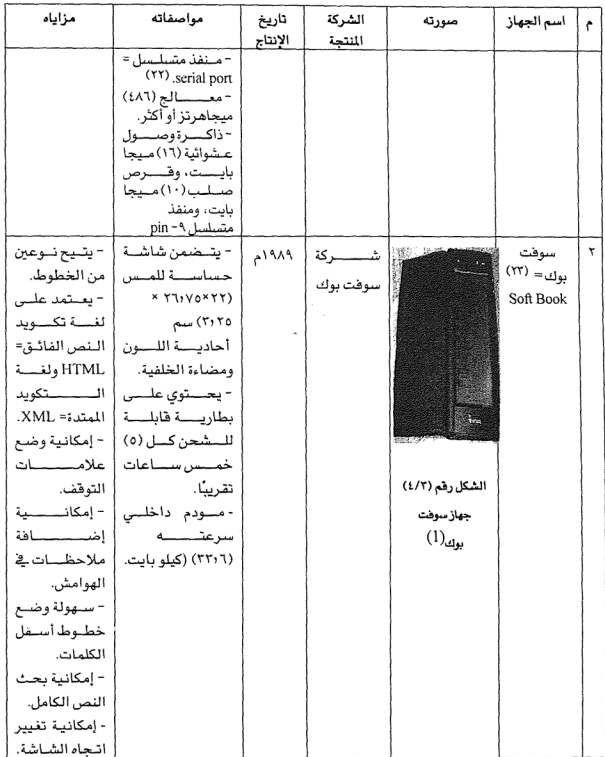 م
اسم الجهاز
صورته
الشركة
المنتجة
تاريخ
الإنتاج
مواصفاته
مزاياه
- منفذ متسلسل =
serial port. (٢٢)
- معالج (٤٨٦)
ميجاهرتز أو أكثر.
- ذاكرة وصول
عشوائية (١٦) ميجا
بايت، وقرص
صلب (١٠) ميجا
بايت، ومنفذ
متسلسل ٩- pin
٢
سوفت
بوك= (٢٣)
Soft Book
الشكل رقم (٤/٣)
جهاز سوفت
بوك(1)
شركة
سوفت بوك
١٩٨٩م
- يتضمن شاشة
حساسة للمس
(٢٢×٢٦,٧٥ ×
٣,٢٥) سم
أحادية اللون
ومضاءة الخلفية.
- يحتوي على
بطارية قابلة
للشحن كل (٥)
خمس ساعات
تقريبًا.
- مودم داخلي
سرعته
(٣٣,٦) (كيلو بايت.
- يتيح نوعين
من الخطوط.
- يعتمد على
لغة تكويد
النص الفائق=
HTML ولغة
التكويد
الممتدة= XML.
- إمكانية وضع
علامات
التوقف.
- إمكانية
إضافة
ملاحظات في
الهوامش.
- سهولة وضع
خطوط أسفل
الكلمات.
- إمكانية بحث
النص الكامل.
- إمكانية تغيير
اتجاه الشاشة.